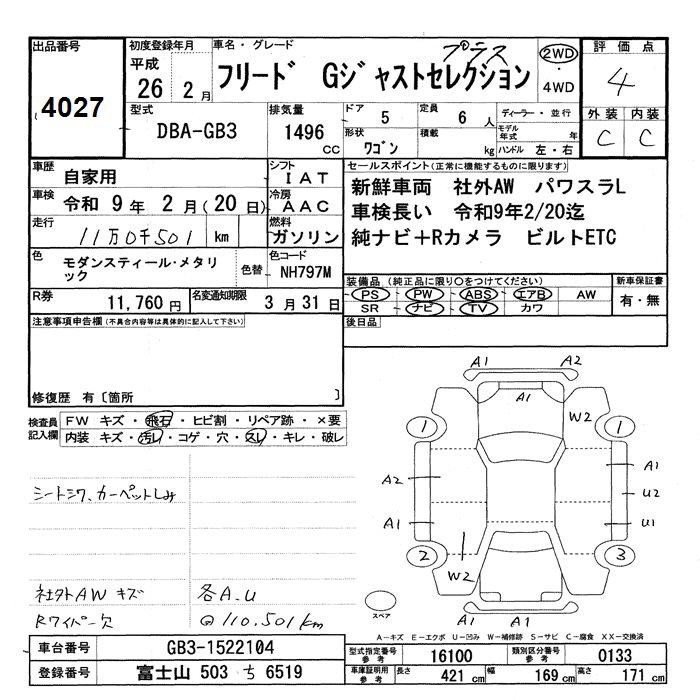 出品番号
4027
初度登録年月
平成
26 2月
車名・グレード
プラス
フリード Gジャストセレクション
2WD
・
4WD
評価点
4
外装 内装
C C
型式
DBA-GB3
排気量
1496 CC
ドア 5
定員 6人
形状 ワゴン
積載 kg
ディーラー・並行
モデル年式 年
ハンドル 左・右
車歴 自家用
シフト IAT
車検 令和 9年 2月(20日)
冷房 AAC
走行 11万0千501 km
燃料 ガソリン
色 モダンスティール・メタリック
色替
色コード NH797M
R券 11,760円
名変通知期限 3月31日
セールスポイント(正常に機能するものに限ります)
新鮮車両 社外AW パワスラL
車検長い 令和9年2/20迄
純ナビ+Rカメラ ビルトETC
装備品 (純正品に限り○をつけてください)
PS PW ABS エアB AW
SR ナビ TV カワ
新車保証書
有・無
後日品
注意事項申告欄(不具合内容等は具体的に記入して下さい)
修復歴 有〔箇所 〕
検査員記入欄
FW キズ・飛石・ヒビ割・リペア跡・×要
内装 キズ・汚レ・コゲ・穴・スレ・キレ・破レ
シートシワ、カーペットしみ
社外AW キズ 各A.U
Rワイパー欠 @110,501km
A1 A2
A1
W2
1 1
A2 A1
U2
A1 U1
2 3
W2
A1 A1
スペア
A-キズ E-エクボ U-凹み W-補修跡 S-サビ C-腐食 XX-交換済
車台番号 GB3-1522104
登録番号 富士山 503 ち 6519
型式指定番号 参考 16100
類別区分番号 参考 0133
車庫証明用 参考 長さ 421 cm 幅 169 cm 高さ 171 cm